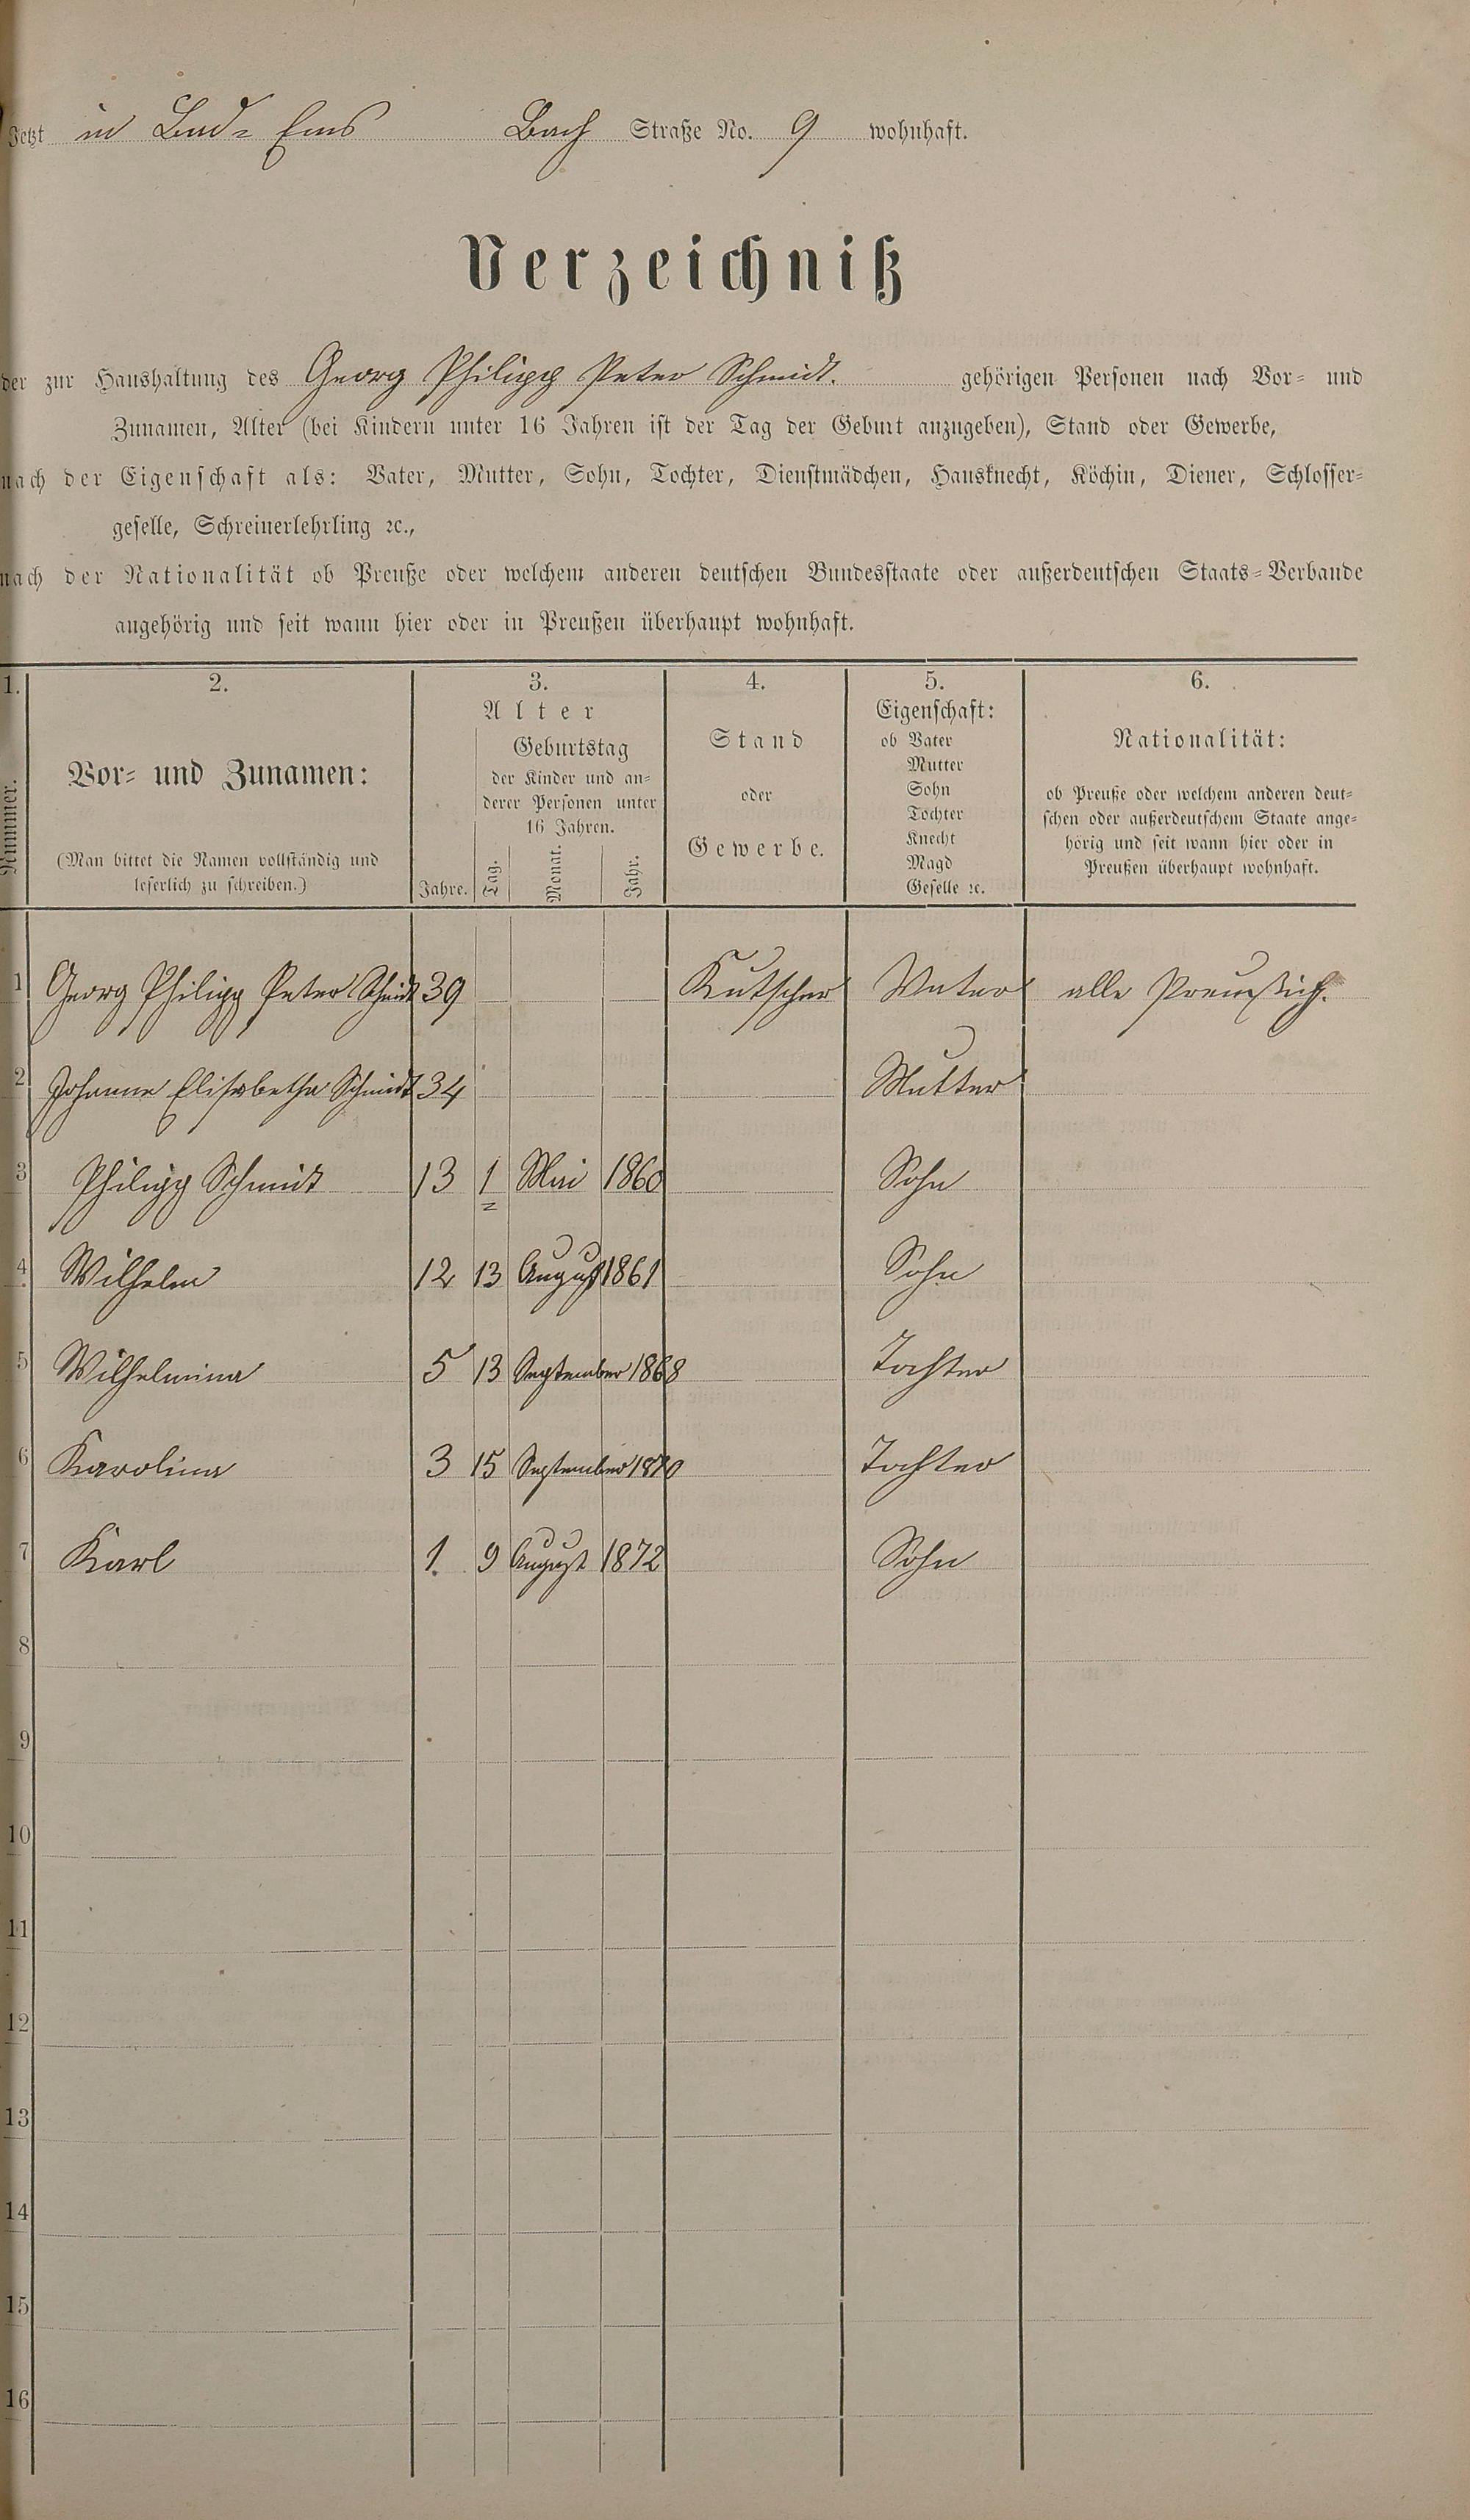 Jetzt in Bad-Ems Bach Straße No. 9 wohnhaft.
Verzeichniß
der zur Haushaltung des Georg Philipp Peter Schmidt. gehörigen Personen nach Vor- und
Zunamen, Alter (bei Kindern unter 16 Jahren ist der Tag der Geburt anzugeben), Stand oder Gewerbe,
nach der Eigenschaft als: Vater, Mutter, Sohn, Tochter, Dienstmädchen, Hausknecht, Köchin, Diener, Schlosser-
geselle, Schreinerlehrling ꝛc.,
nach der Nationalität ob Preuße oder welchem anderen deutschen Bundesstaate oder außerdeutschen Staats-Verbande
angehörig und seit wann hier oder in Preußen überhaupt wohnhaft.
1.
Nummer.
2.
Vor- und Zunamen:
(Man bittet die Namen vollständig und
leserlich zu schreiben.)
3.
Alter
Geburtstag
der Kinder und an-
derer Personen unter
16 Jahren.
Jahre. Tag. Monat. Jahr.
4.
Stand
oder
Gewerbe.
5.
Eigenschaft:
ob Vater
Mutter
Sohn
Tochter
Knecht
Magd
Geselle ꝛc.
6.
Nationalität:
ob Preuße oder welchem anderen deut-
schen oder außerdeutschem Staate ange-
hörig und seit wann hier oder in
Preußen überhaupt wohnhaft.
1 Georg Philipp Peter Schmidt 39 Kutscher Vater alle Preußisch.
2 Johanne Elisabetha Schmidt 34 Mutter
3 Philipp Schmidt 13 1 Mai 1860 Sohn
4 Wilhelm 12 13 August 1861 Sohn
5 Wilhelmina 5 13 September 1868 Tochter
6 Karolina 3 15 September 1870 Tochter
7 Karl 1. 9 August 1872 Sohn
8
9
10
11
12
13
14
15
16